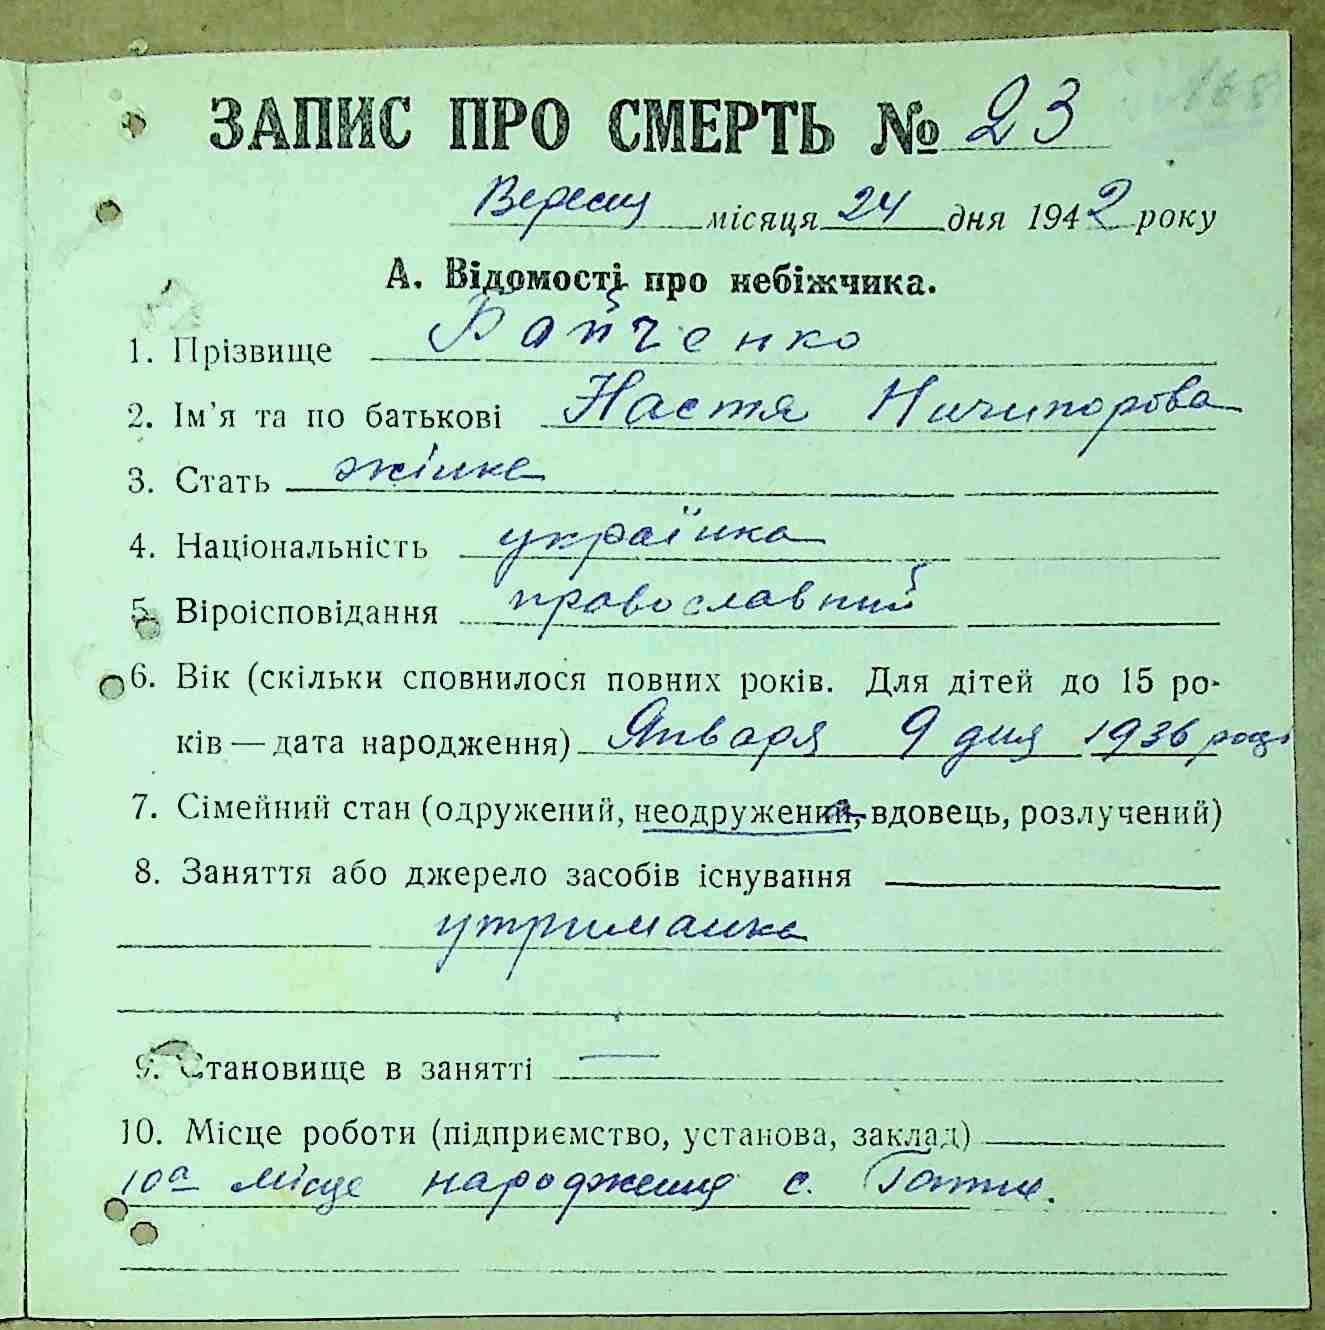 168
ЗАПИС ПРО СМЕРТЬ № 23
Вересня місяця 24 дня 1942 року
А. Відомості про небіжчика.
1. Прізвище Байченко
2. Ім'я та по батькові Настя Ничипорова
3. Стать жінка
4. Національність українка
5. Віроісповідання православний
6. Вік (скільки сповнилося повних років. Для дітей до 15 ро-
ків — дата народження) Января 9 дня 1936 році
7. Сімейний стан (одружений, неодружена, вдовець, розлучений)
8. Заняття або джерело засобів існування
утриманка
9. Становище в занятті —
10. Місце роботи (підприємство, установа, заклад)
10а місце народження с. Гатне.